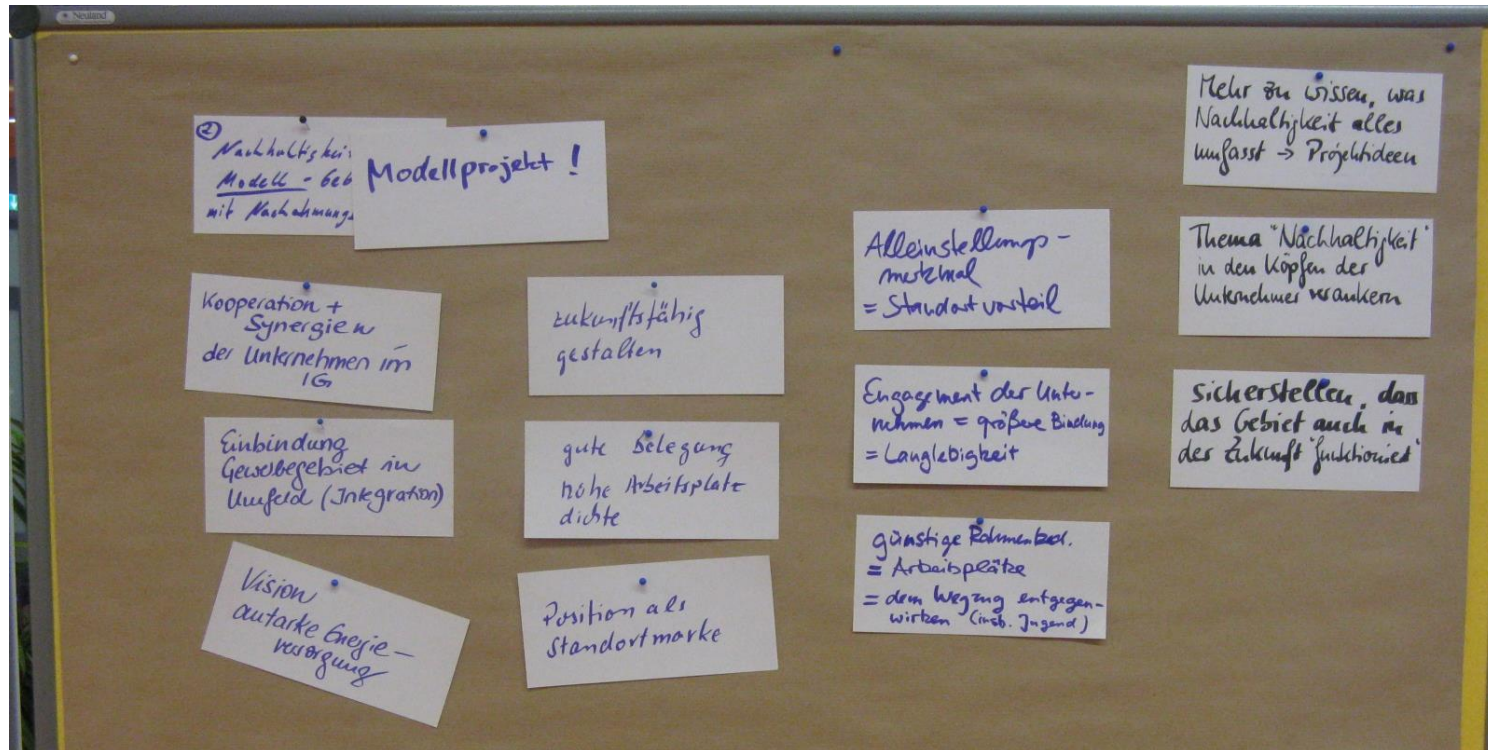 Neuland
②
Nachhaltigkei
Modell - Geb
mit Nachahmungs
Modellprojekt !
Kooperation +
Synergien
der Unternehmen im
IG
Einbindung
Gewerbegebiet in
Umfeld (Integration)
Vision
autarke Energie-
versorgung
zukunftsfähig
gestalten
gute Belegung
hohe Arbeitsplatz
dichte
Position als
Standortmarke
Alleinstellungs-
merkmal
= Standortvorteil
Engagement der Unter-
nehmen = größere Bindung
= Langlebigkeit
günstige Rahmenbed.
= Arbeitsplätze
= dem Wegzug entgegen-
wirken (insb. Jugend)
Mehr zu wissen, was
Nachhaltigkeit alles
umfasst → Projektideen
Thema "Nachhaltigkeit"
in den Köpfen der
Unternehmer verankern
sicherstellen, dass
das Gebiet auch in
der Zukunft "funktioniert"